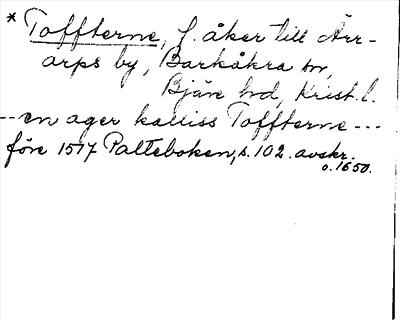 * Toffterne, f. åker till Ärr-
arps by, Barkåkra sn,
Bjäre hd, Krist. l.
--en ager kalliss Toffterne---
före 1517 Palteboken, s. 102. avskr.
o. 1650.